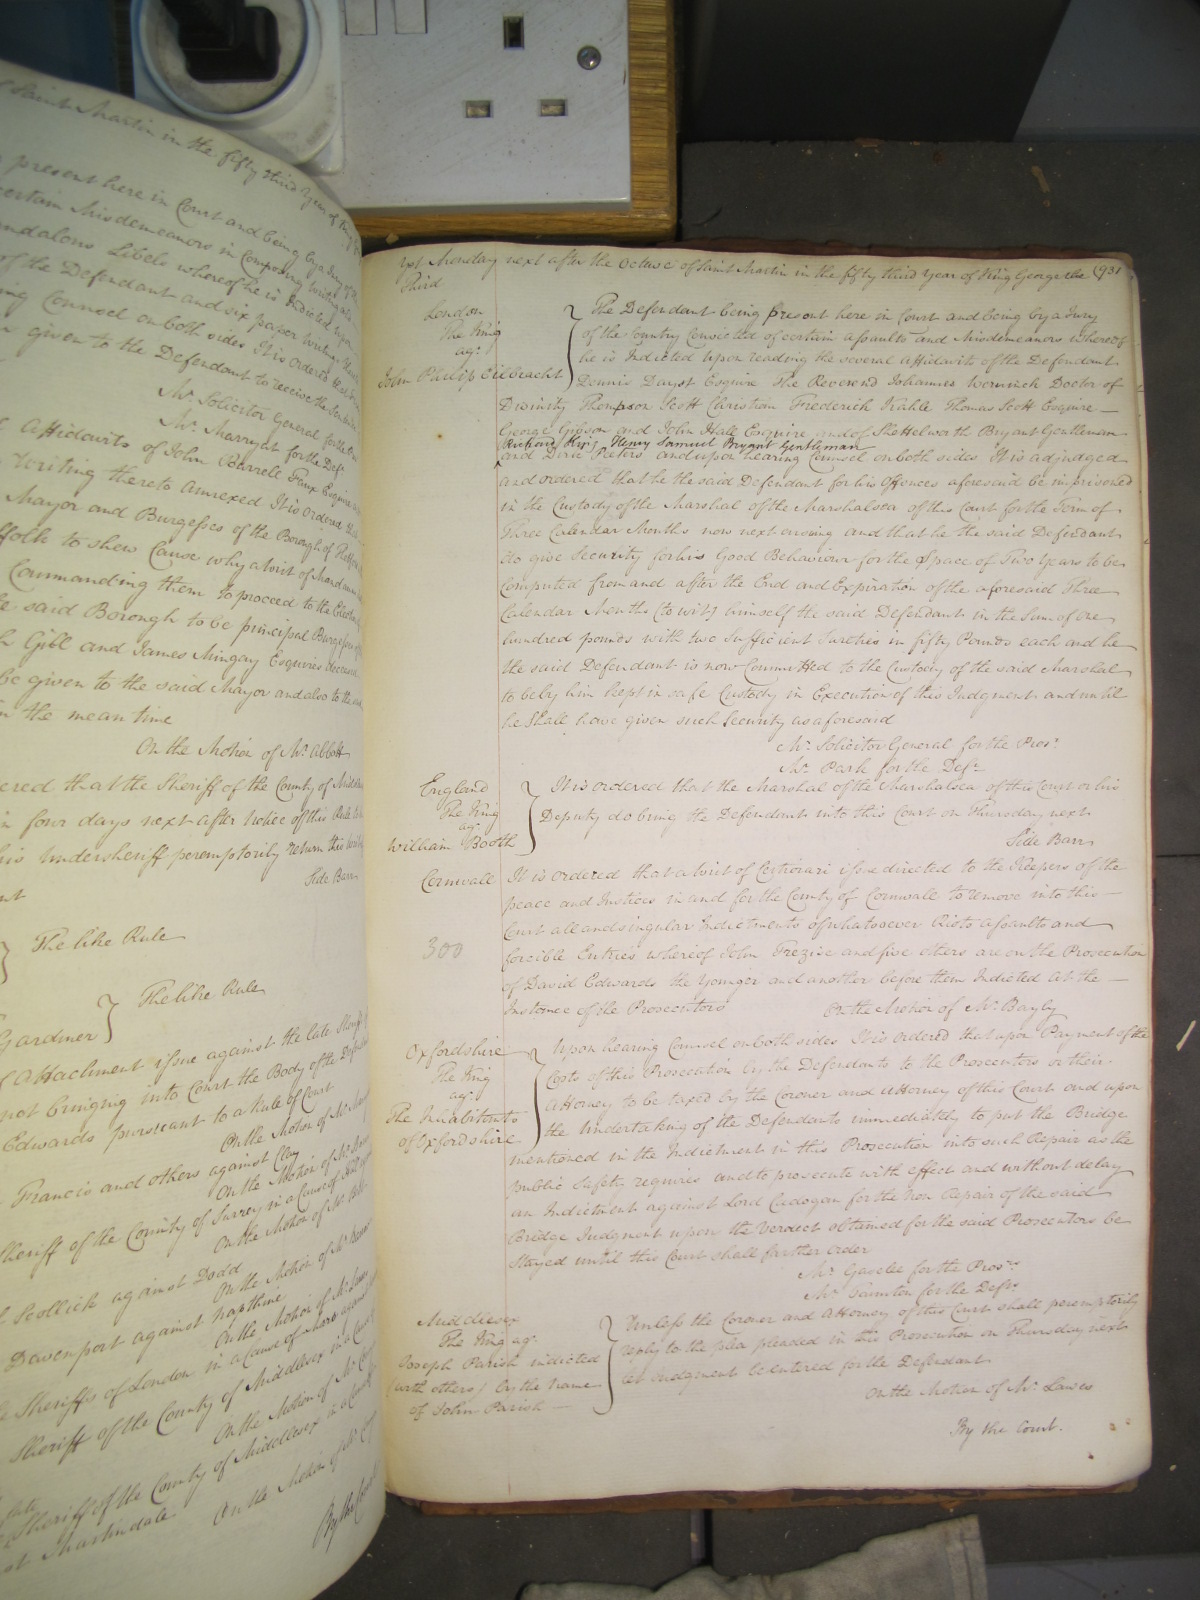 of Saint Martin in the fifty third Year of King
present here in Court and being by a Jury of the
certain Misdemeanors in Composing Writing and
Scandalous Libels whereof he is Indicted upon
of the Defendant and six paper Writings
Counsel on both sides It is ordered that
given to the Defendant to receive the
Mr. Solicitor General for the
Mr. Marryat for the Deft.
Affidavits of John Burrell Faux Esquire
Writing thereto annexed It is ordered that
Mayor and Burgesses of the Borough of
to shew Cause why a Writ of Mandamus
Commanding them to proceed to the Election
said Borough to be principal Burgesses
Gibl and James Mingay Esquires deceased
be given to the said Mayor and also to the
in the mean time
On the Motion of Mr. Abbott
ordered that the Sheriff of the County of
in four days next after notice of this Rule
his Undersheriff peremptorily return the Writ
Side Barr
The like Rule
Gardiner } The like Rule
Attachment issue against the late Sheriff
not bringing into Court the Body of the Defendant
Edwards pursuant to a Rule of Court
On the Motion of Mr.
Francis and others against Clay
On the Motion of Mr.
Sheriff of the County of Surrey in a Cause of
On the Motion of Mr.
Scollick against Dodd
On the Motion of Mr.
Davenport against Napthine
On the Motion of Mr. Lawes
Sheriffs of London in a Cause of
Sheriff of the County of Middlesex in a Cause
On the Motion of Mr.
Sheriff of the County of Middlesex in a Cause
Martindale
On the Motion of Mr.
By the Court
yet Monday next after the Octave of Saint Martin in the fifty third Year of King George the (931
Third
London
The King
agt.
John Philip Oilbracht
The Defendant being present here in Court and being by a Jury
of the Country Convicted of certain assaults and Misdemeanors whereof
he is Indicted Upon reading the several Affidavits of the Defendant
Dennis Esquire The Reverend Johannes Werninck Doctor of
Divinity Thompson Scott Christian Frederick Kahle Thomas Scott Esquire
George Gibson and John Hall Esquire and of Shettelworth Bryant Gentleman
Richard King Henry Samuel Bryant Gentleman
and Dirk Peeters and upon hearing Counsel on both sides It is adjudged
and ordered that he the said Defendant for his Offences aforesaid be imprisoned
in the Custody of the Marshal of the Marshalsea of this Court for the Term of
Three Calendar Months now next ensuing and that he the said Defendant
do give Security for his Good Behaviour for the Space of Two Years to be
computed from and after the End and Expiration of the aforesaid Three
Calendar Months (to wit) himself the said Defendant in the Sum of One
hundred pounds with two sufficient Sureties in fifty Pounds each and he
the said Defendant is now Committed to the Custody of the said Marshal
to be by him kept in safe Custody in Execution of this Judgment and until
he Shall have given such Security as aforesaid
Mr. Solicitor General for the Prosr.
Mr. Park for the Deft.
England
The King
agt.
William Booth
It is ordered that the Marshal of the Marshalsea of this Court or his
Deputy do bring the Defendant into this Court on Thursday next
Side Barr
Cornwall
It is ordered that a Writ of Certiorari issue directed to the Keepers of the
peace and Justices in and for the County of Cornwall to remove into this
Court all and singular Indictments of whatsoever Riots assaults and
300
forcible Entries whereof John Trezise and five others are on the Prosecution
of David Edwards the Younger and another before them Indicted At the
Instance of the Prosecutors
On the Motion of Mr. Bayly
Oxfordshire
The King
agt.
The Inhabitants
of Oxfordshire
Upon hearing Counsel on both sides It is ordered that upon Payment of the
Costs of this Prosecution by the Defendants to the Prosecutors or their
Attorney to be taxed by the Coroner and Attorney of this Court and upon
the Undertaking of the Defendants immediately to put the Bridge
mentioned in the Indictment in this Prosecution into such Repair as the
public Safety requires and to prosecute with effect and without delay
an Indictment against Lord Cadogan for the Non Repair of the said
Bridge Judgment upon the Verdict obtained for the said Prosecutors be
Stayed until this Court shall further Order
Mr. Gaselee for the Prosrs.
Mr. Taunton for the Defts.
Middlesex
The King agt.
Joseph Parish indicted
(with others) by the name
of John Parish
Unless the Coroner and Attorney of this Court shall peremptorily
reply to the plea pleaded in this Prosecution on Thursday next
let Judgment be entered for the Defendant
On the Motion of Mr. Lawes
By the Court.